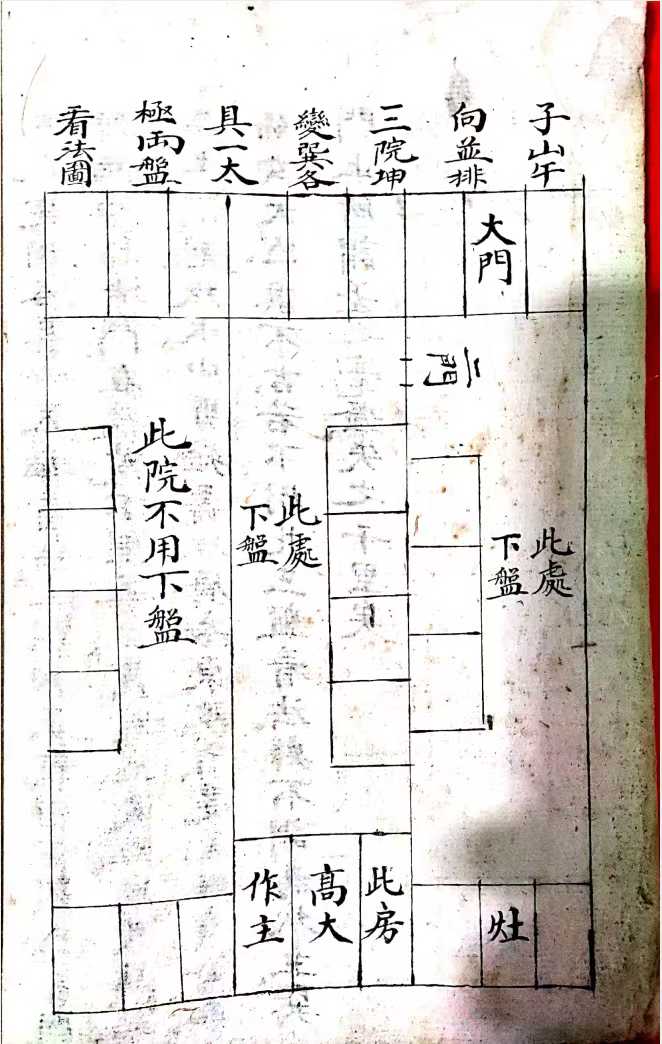 子山午
向並排
三院坤
變巽各
具一太
極両盤
看法圖
大門
二門
此處
下盤
此處
下盤
此院不用下盤
灶
此房
高大
作主